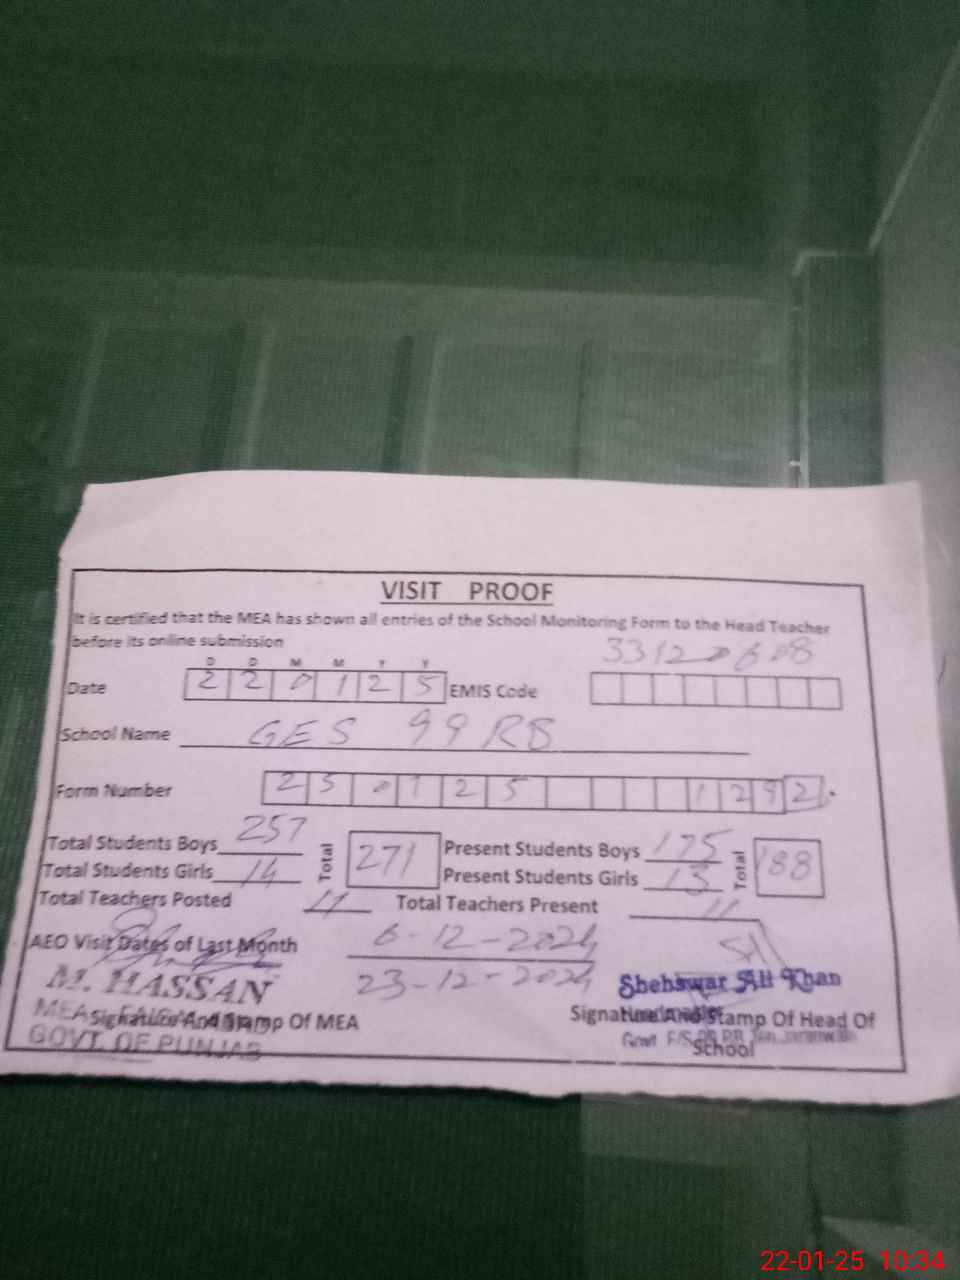 VISIT PROOF
It is certified that the MEA has shown all entries of the School Monitoring Form to the Head Teacher
before its online submission
33120608
D D M M Y Y
Date 2 2 0 1 2 5 EMIS Code
School Name GES 99 RB
Form Number 2 5 0 1 2 5 1 2 9 2
Total Students Boys 257 Total 271 Present Students Boys 175 Total 188
Total Students Girls 14 Present Students Girls 13
Total Teachers Posted 11 Total Teachers Present 11
AEO Visit Dates of Last Month 6-12-2024
23-12-2024
M. HASSAN Shehswar Ali Khan
MEA
Signature And Stamp Of MEA Signature And Stamp Of Head Of
School
GOVT. OF PUNJAB
22-01-25 10:34